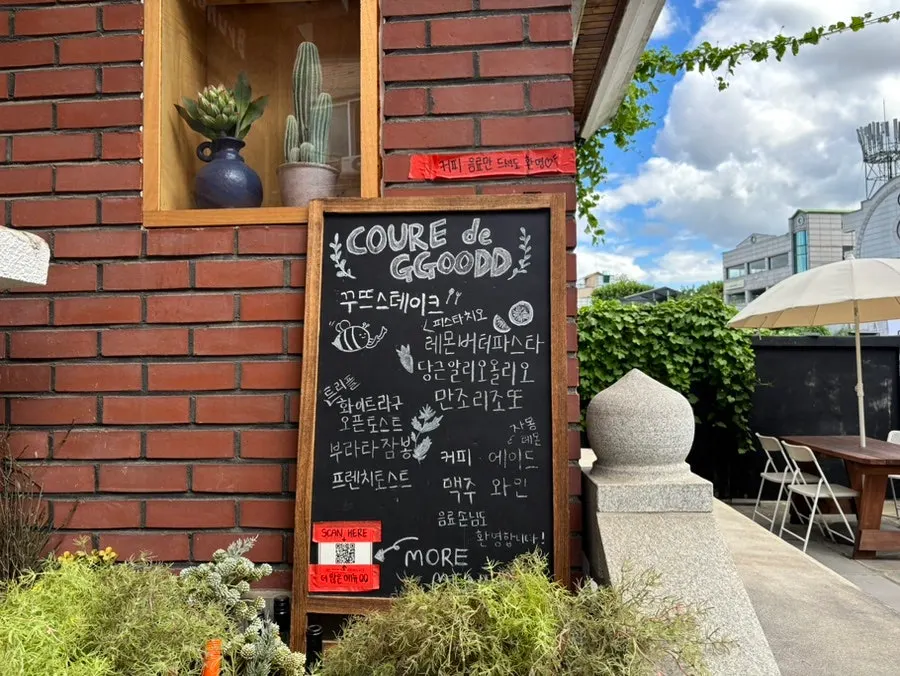 커피 음료만 드셔도 환영♡
COURE de
GGOODD
꾸뜨스테이크
피스타치오
레몬버터파스타
당근알리오올리오
만조리조또
트러플
화이트라구
오픈토스트
부라타잠봉
프렌치토스트
자몽
레몬
커피 에이드
맥주 와인
음료손님도
환영합니다!
SCAN HERE
더 많은 메뉴
MORE